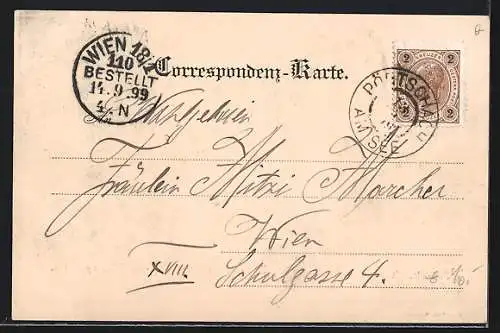 WIEN 18/1
110
BESTELLT
14.9.99
4.N
Correspondenz-Karte.
2 KREUZER 2
PÖRTSCHACH
A/SEE
2 2
Wohlgeboren
Fräulein Mitzi Marcher
Wien
XVIII.
Schulgasse 4.